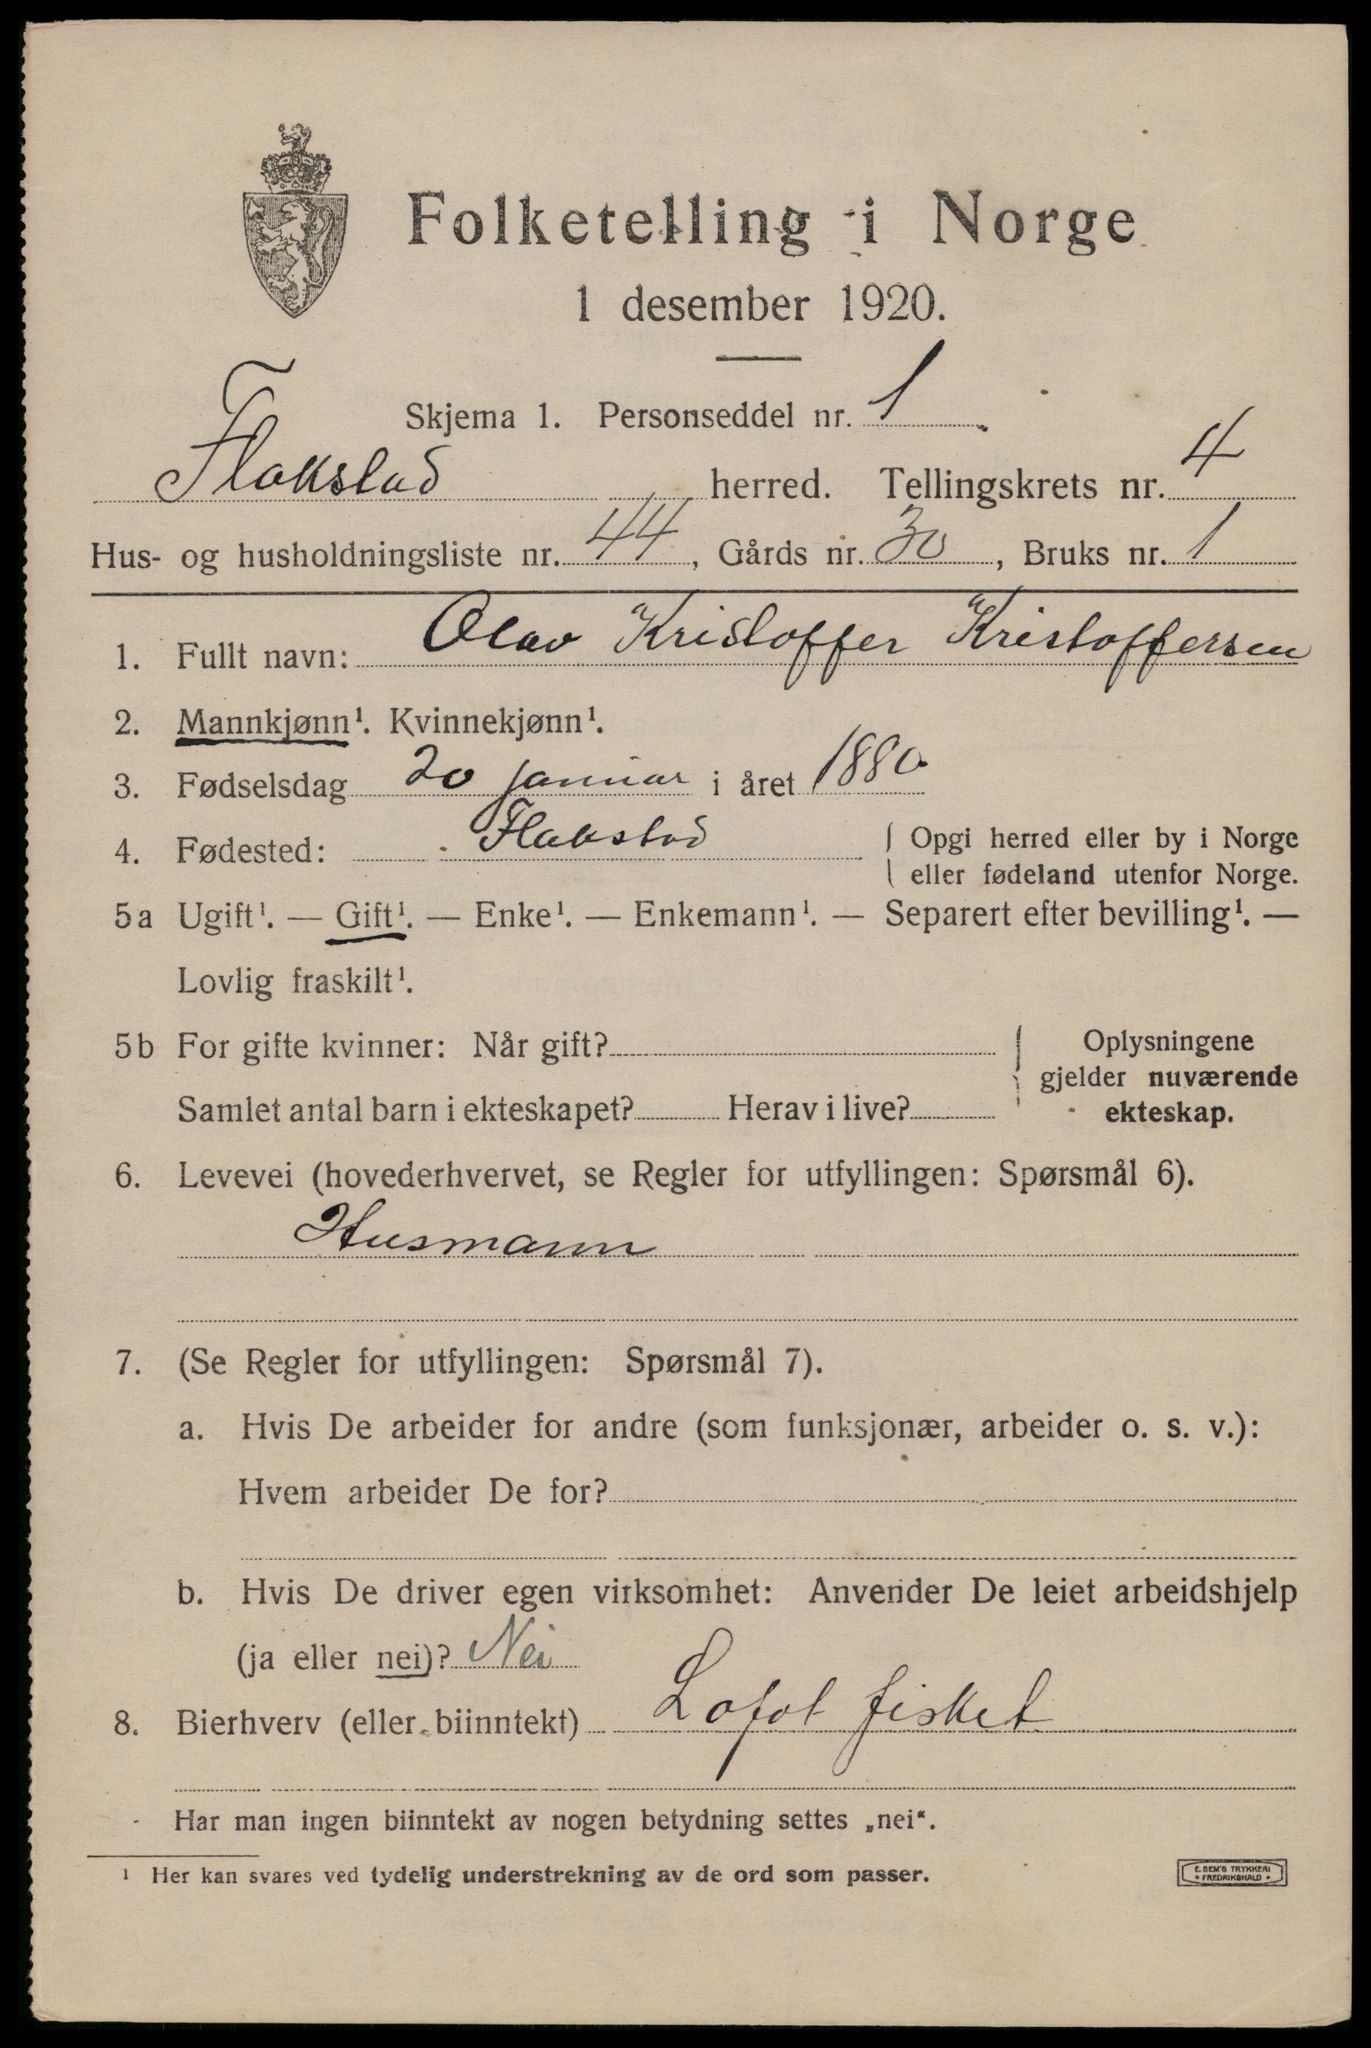 Folketelling i Norge
1 desember 1920.
Skjema 1. Personseddel nr. 1
Flakstad herred. Tellingskrets nr. 4
Hus- og husholdningsliste nr. 44, Gårds nr. 30, Bruks nr. 1
1. Fullt navn: Olav Kristoffer Kristoffersen
2. Mannkjønn¹. Kvinnekjønn¹.
3. Fødselsdag 20 januar i året 1880
4. Fødested: Flakstad { Opgi herred eller by i Norge
eller fødeland utenfor Norge.
5a Ugift¹. — Gift¹. — Enke¹. — Enkemann¹. — Separert efter bevilling¹. —
Lovlig fraskilt¹.
5b For gifte kvinner: Når gift?
Samlet antal barn i ekteskapet? Herav i live?
Oplysningene
gjelder nuværende
ekteskap.
6. Levevei (hovederhvervet, se Regler for utfyllingen: Spørsmål 6).
Husmann
7. (Se Regler for utfyllingen: Spørsmål 7).
a. Hvis De arbeider for andre (som funksjonær, arbeider o. s. v.):
Hvem arbeider De for?
b. Hvis De driver egen virksomhet: Anvender De leiet arbeidshjelp
(ja eller nei)? Nei
8. Bierhverv (eller biinntekt) Lofot fisket
Har man ingen biinntekt av nogen betydning settes „nei“.
¹ Her kan svares ved tydelig understrekning av de ord som passer.
E. SEM'S TRYKKERI
• FREDRIKSHALD •